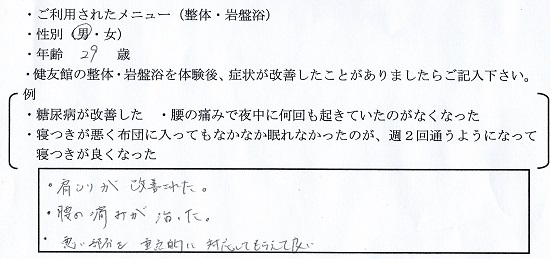 ・ご利用されたメニュー（整体・岩盤浴）
・性別（男・女）
・年齢　29　歳
・健友館の整体・岩盤浴を体験後、症状が改善したことがありましたらご記入下さい。
例
・糖尿病が改善した　・腰の痛みで夜中に何回も起きていたのがなくなった
・寝つきが悪く布団に入ってもなかなか眠れなかったのが、週２回通うようになって
寝つきが良くなった
・肩こりが改善された。
・腰の痛みが治った。
・悪い部分を重点的に対応してもらえて良い